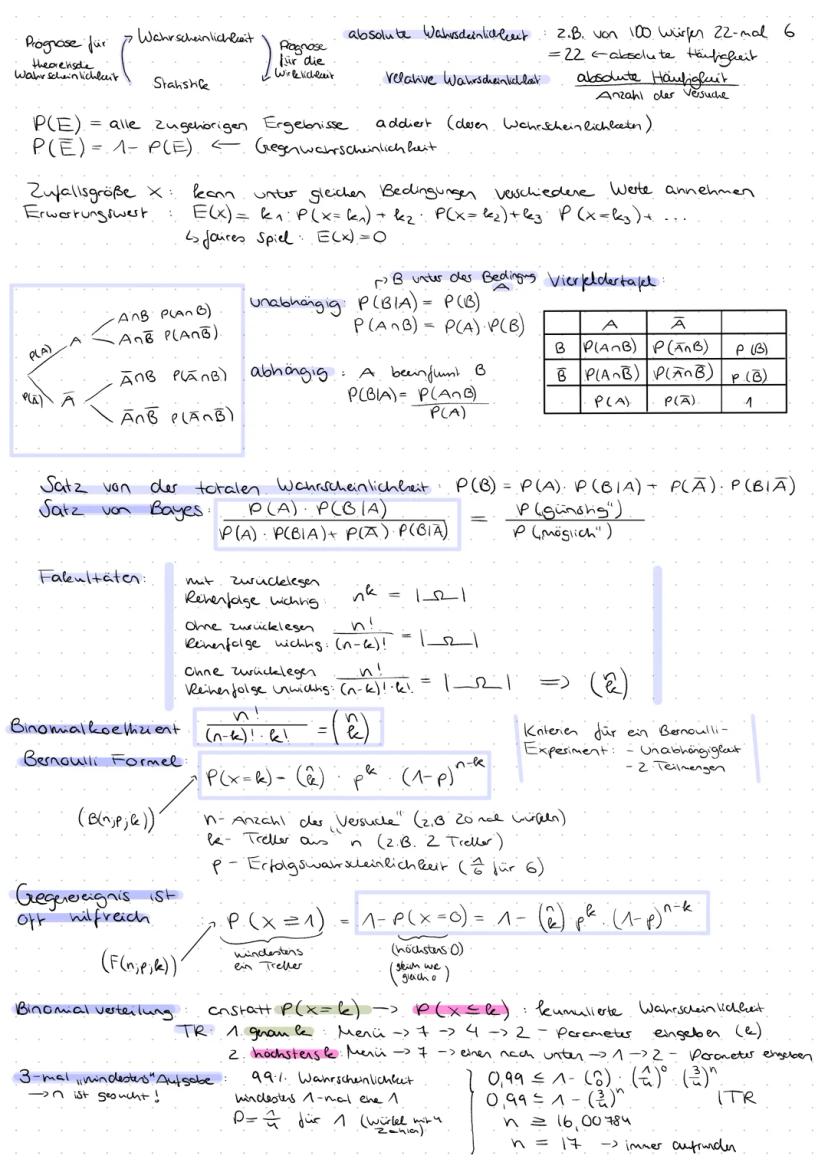 Prognose für theoretische Wahrscheinlichkeit
Wahrscheinlichkeit
Statistik
Prognose für die Wirklichkeit
absolute Wahrscheinlichkeit : z.B. von 100 Würfen 22-mal 6
= 22 ← absolute Häufigkeit
relative Wahrscheinlichkeit: absolute Häufigkeit / Anzahl der Versuche
P(E) = alle zugehörigen Ergebnisse addiert (deren Wahrscheinlichkeiten)
P(E̅) = 1 - P(E) ← Gegenwahrscheinlichkeit
Zufallsgröße X: kann unter gleichen Bedingungen verschiedene Werte annehmen
Erwartungswert : E(x) = k₁ · P(x=k₁) + k₂ · P(x=k₂) + k₃ · P(x=k₃) + ...
↳ faires Spiel: E(x) = 0
P(A) A A∩B P(A∩B)
A∩B̅ P(A∩B̅)
P(A̅) A̅ A̅∩B P(A̅∩B)
A̅∩B̅ P(A̅∩B̅)
↱ B unter der Bedingung A
unabhängig: P(B|A) = P(B)
P(A∩B) = P(A)·P(B)
abhängig : A beeinflusst B
P(B|A) = P(A∩B) / P(A)
Vierfeldertafel:
A A̅
B P(A∩B) P(A̅∩B) P(B)
B̅ P(A∩B̅) P(A̅∩B̅) P(B̅)
P(A) P(A̅) 1
Satz von der totalen Wahrscheinlichkeit : P(B) = P(A) · P(B|A) + P(A̅) · P(B|A̅)
Satz von Bayes: P(A) · P(B|A) / P(A) · P(B|A) + P(A̅) · P(B|A̅) = P(„günstig") / P(„möglich")
Fakultäten:
mit zurücklegen
Reihenfolge wichtig: nᵏ = |Ω|
ohne zurücklegen
Reihenfolge wichtig: n! / (n-k)! = |Ω|
ohne zurücklegen
Reihenfolge unwichtig: n! / (n-k)!·k! = |Ω| => (n k)
Binomialkoeffizient: n! / (n-k)!·k! = (n k)
Bernoulli Formel: P(x=k) = (n k) · pᵏ · (1-p)ⁿ⁻ᵏ
(B(n;p;k))
Kriterien für ein Bernoulli-
Experiment: - Unabhängigkeit
- 2 Teilmengen
n - Anzahl der „Versuche" (z.B 20 mal würfeln)
k - Treffer aus n (z.B. 2 Treffer)
p - Erfolgswahrscheinlichkeit (1/6 für 6)
Gegenereignis ist
oft hilfreich
P(x ≥ 1) = 1 - P(x=0) = 1 - (n k) pᵏ · (1-p)ⁿ⁻ᵏ
(F(n;p;k))
mindestens
ein Treffer
(höchstens 0)
(gleich wie
gleich 0)
Binomialverteilung: anstatt P(x=k) → P(x≤k) : kumulierte Wahrscheinlichkeit
TR: 1. genau k : Menü → 7 → 4 → 2 - Parameter eingeben (k)
2. höchstens k: Menü → 7 → einen nach unten → 1 → 2 - Parameter eingeben
3-mal „mindestens" Aufgabe :
→ n ist gesucht!
99% Wahrscheinlichkeit
mindestens 1-mal eine 1
P = 1/4 für 1 (Würfel mit 4
0,99 ≤ 1 - (n 0) · (1/4)⁰ · (3/4)ⁿ
0,99 ≤ 1 - (3/4)ⁿ |TR
n ≥ 16,00784
n = 17 → immer aufrunden